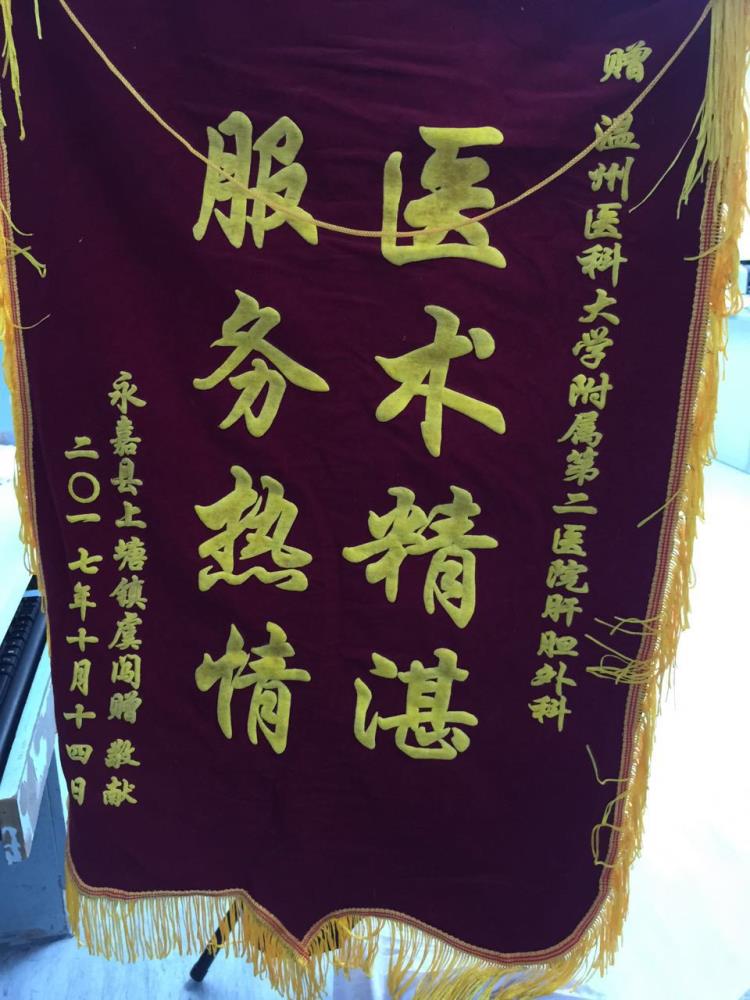 赠 温州医科大学附属第二医院肝胆外科
医术精湛
服务热情
永嘉县上塘镇虞闯赠 敬献
二〇一七年十月十四日